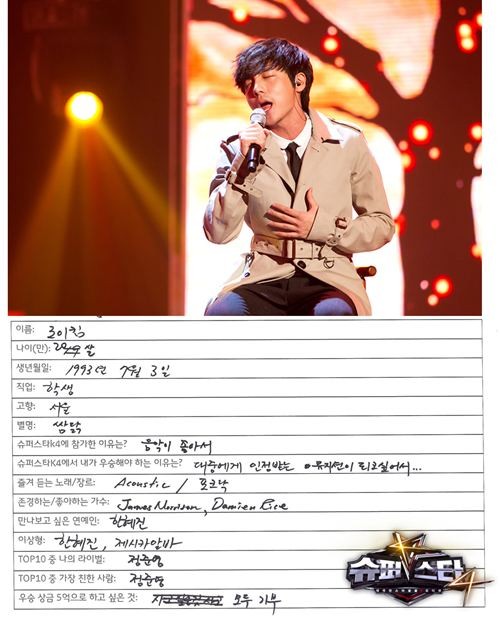 이름: 로이킴
나이(만): 20살
생년월일: 1993년 7월 3일
직업: 학생
고향: 서울
별명: 쌈닭
슈퍼스타k4에 참가한 이유는? 음악이 좋아서
슈퍼스타K4에서 내가 우승해야 하는 이유는? 대중에게 인정받는 뮤지션이 되고싶어서...
즐겨 듣는 노래/장르: Acoustic / 포크락
존경하는/좋아하는 가수: James Morrison, Damien Rice
만나보고 싶은 연예인: 한혜진
이상형: 한혜진, 제시카알바
TOP10 중 나의 라이벌: 정준영
TOP10 중 가장 친한 사람: 정준영
우승 상금 5억으로 하고 싶은 것: 모두 기부
슈퍼스타 4